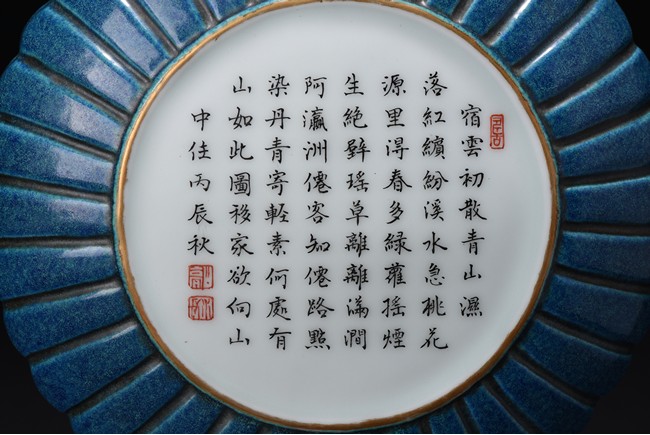 宿雲初散青山濕
落紅繽紛溪水急桃花
源里淂春多綠蘿揺煙
生絶壁瑶草離離滿澗
阿瀛洲僊客知僊路點
染丹青寄輕素何處有
山如此圖移家欲向山
中住丙辰秋